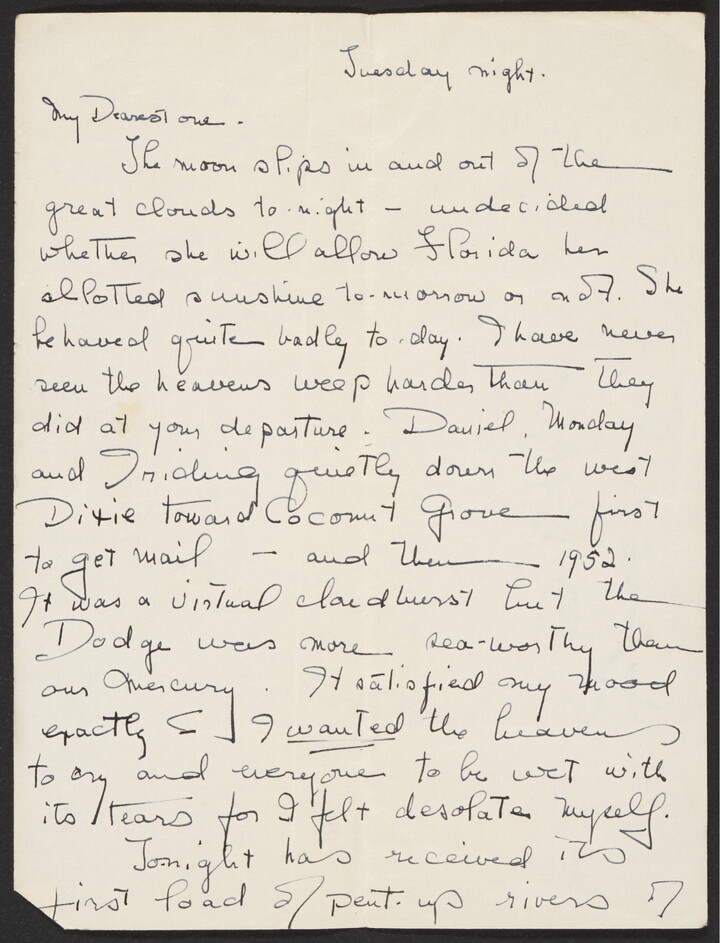 Tuesday night.
My Dearest one.
The moon slips in and out of the
great clouds to-night – undecided
whether she will allow Florida her
allotted sunshine to-morrow or not. She
behaved quite badly to-day. I have never
seen the heavens weep harder than they
did at your departure. Daniel, Monday
and I riding quietly down the west
Dixie toward Coconut Grove first
to get mail – and then 1952.
It was a virtual cloudburst but the
Dodge was more sea-worthy than
our Mercury. It satisfied my mood
exactly I wanted the heavens
to cry and everyone to be wet with
its tears for I felt desolate myself.
Tonight has received its
first load of pent-up rivers of